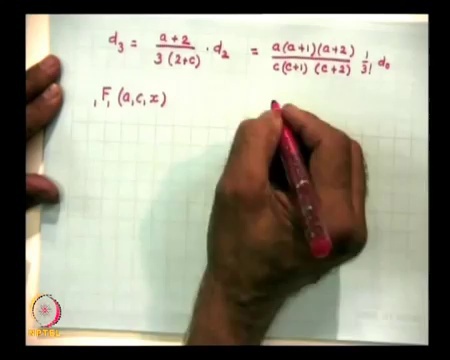 d₃ = a+2 / 3(2+c) · d₂ = a(a+1)(a+2) / c(c+1)(c+2) 1/3! d₀
₁F₁ (a,c,x)
NPTEL